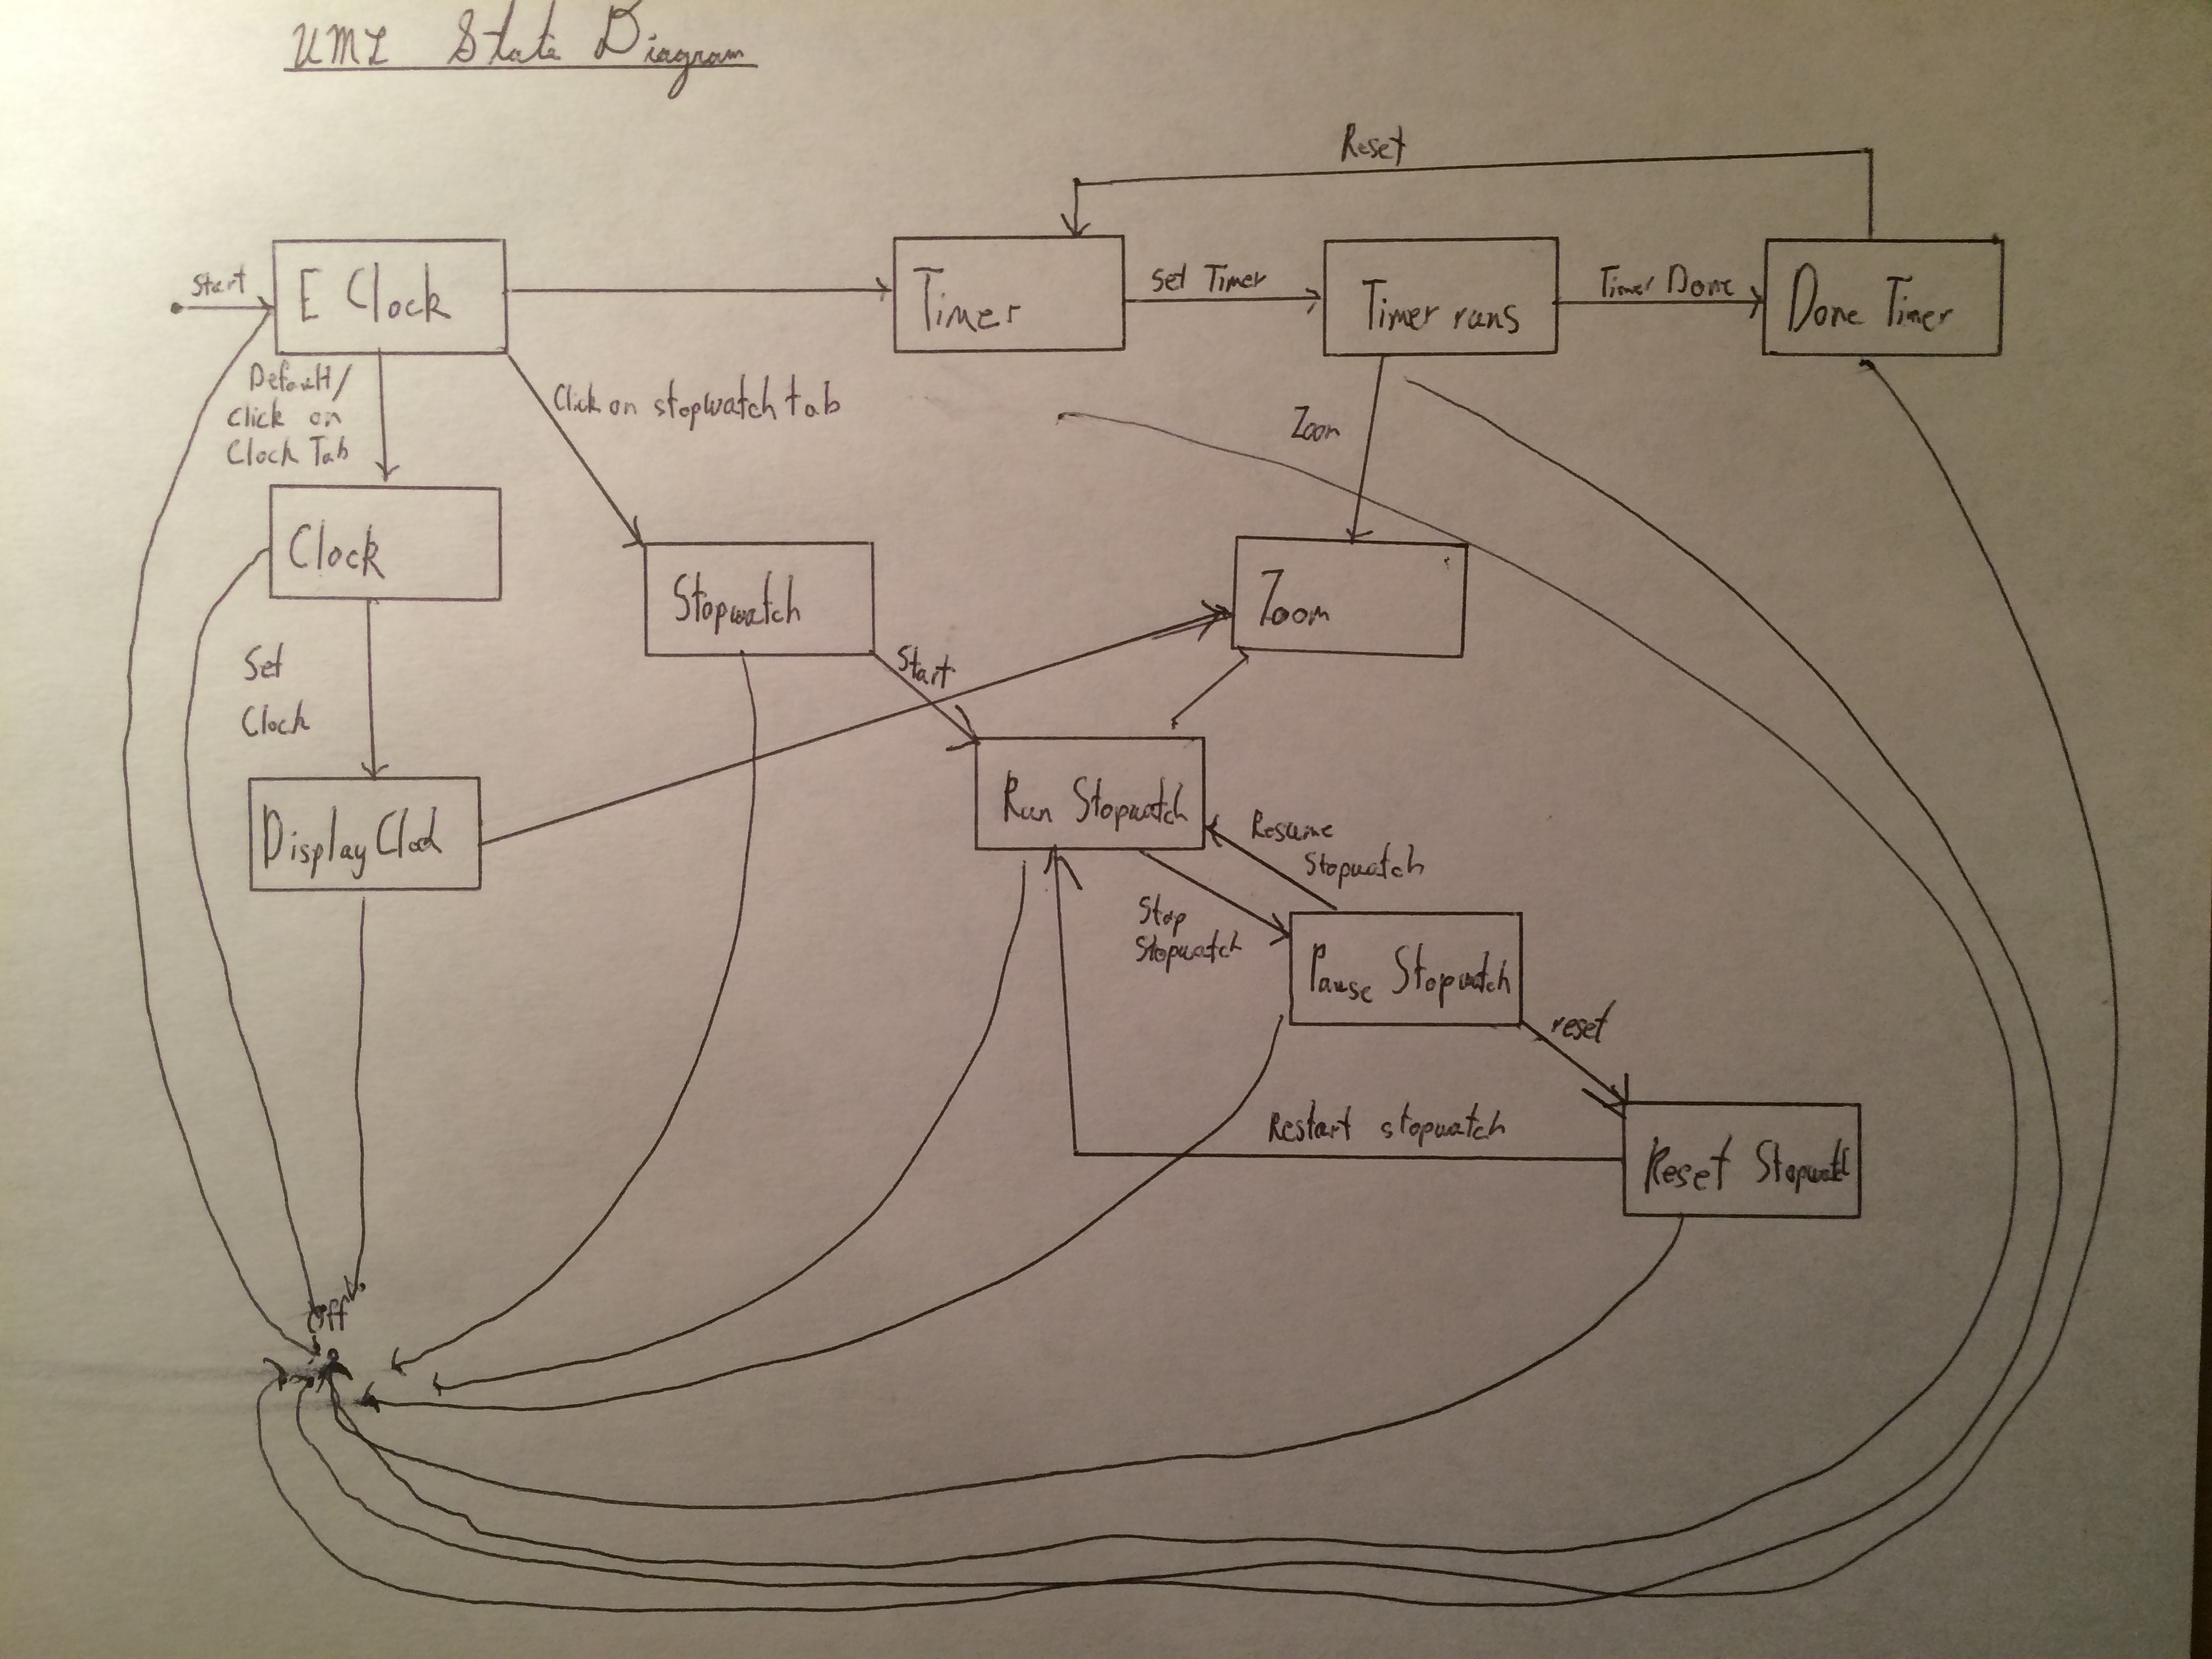 UML State Diagram
Reset
Start
E Clock
Timer
Set Timer
Timer runs
Timer Done
Done Timer
Default/
click on
Clock Tab
Click on stopwatch tab
Zoom
Clock
Stopwatch
Zoom
Set
Clock
Start
Display Clock
Run Stopwatch
Resume
Stopwatch
Stop
Stopwatch
Pause Stopwatch
reset
Restart stopwatch
Reset Stopwatch
Off